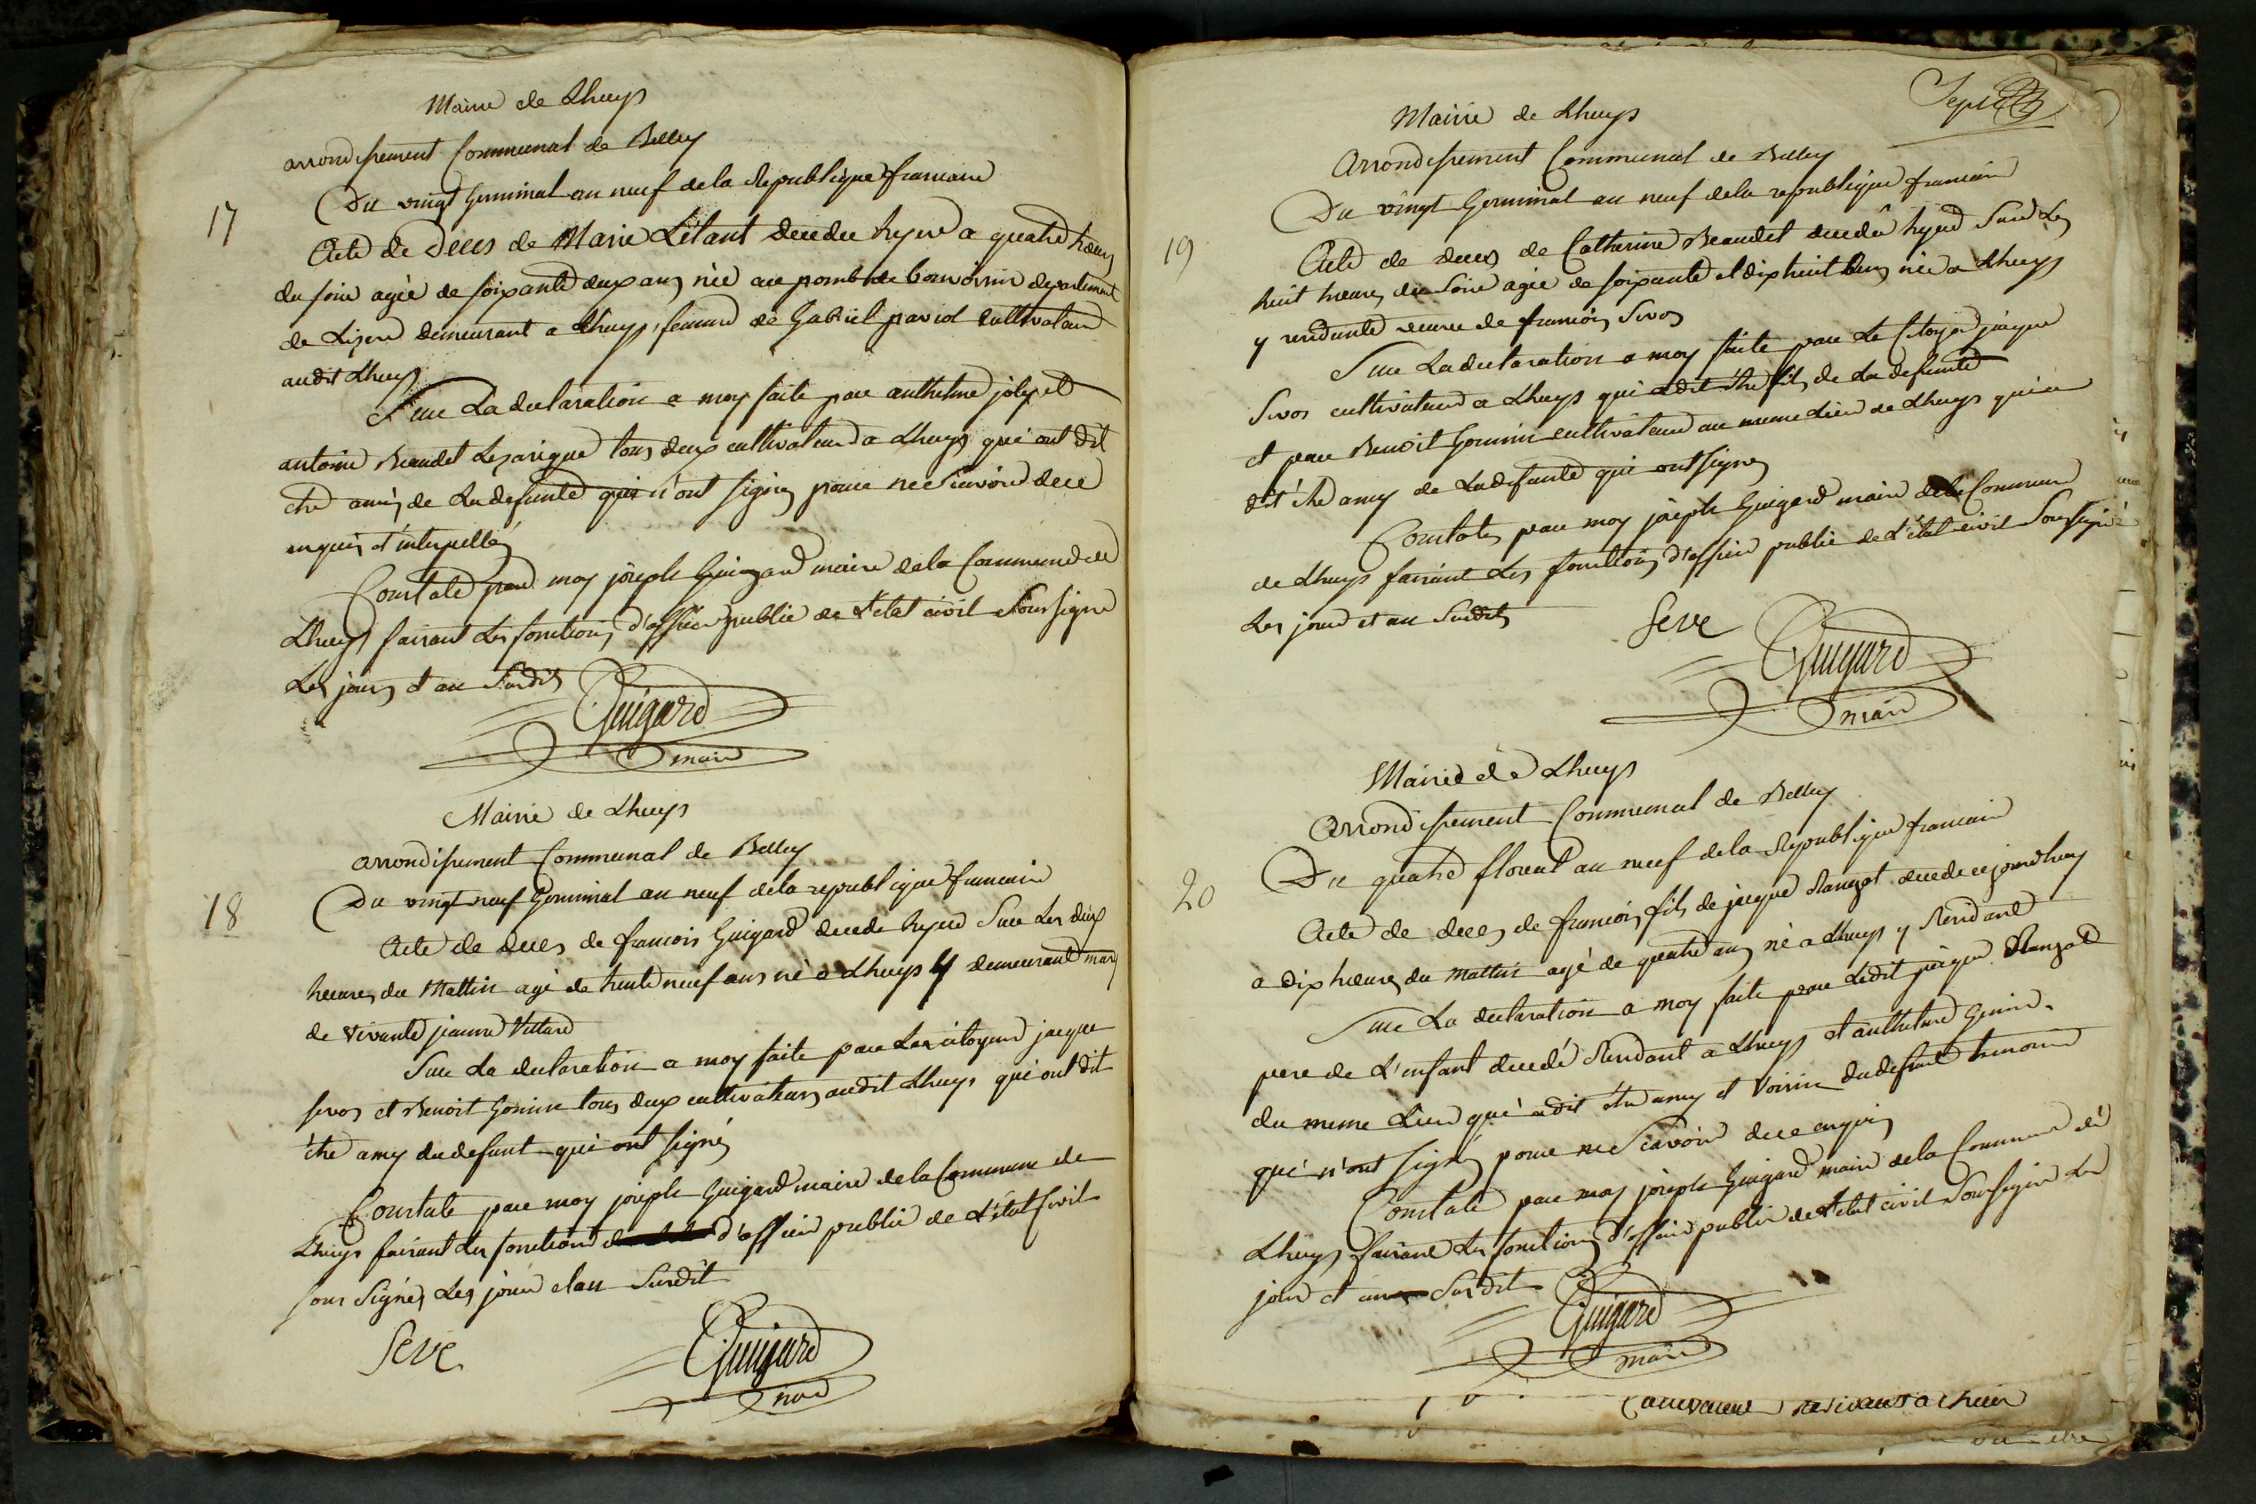 Mairie de Lhuys
arrondissement Communal de Belley
17
Du vingt Germinal an neuf de la Republique francaise
Acte de Deces de Marie Létant decedee hyere a quatre heures
du soir agée de soixante deux ans née au pont de bonvoisin departement
de Lizere demeurant a Lhuys, femme de Gabriel paviol cultivateur
audit Lhuys
Sur La declaration a moy faite par anthelme joly et
antoine Beaudet Lezarigue tous deux cultivateurs a Lhuys qui ont dit
etre amis de La defunte qui n'ont signes pour ne sçavoir de ce
enquis et interpellés
Constaté par moy joseph Guigard maire de la Commune de
Lhuys faisant Les fonctions d'officier public de L'etat civil soussigné
Les jours et an Susdits
Guigard
maire
Mairie de Lhuys
arrondissement Communal de Belley
18
Du vingt neuf Germinal an neuf de la republique francaise
Acte de deces de francois Guigard decede hyere Sur Les dix
heures du Mattin agé de trente neuf ans né a Lhuys y demeurant mary
de vivante jeanne
Sur La declaration a moy faite par Les citoyens jacque
sevos et Benoit Gonin tous deux cultivateurs audit Lhuys qui ont dit
être amy du defunt qui ont signés
Constaté par moy joseph Guigard maire de la Commune de
Lhuys faisant Les fonctions d'officier public de L'état Civil
sous Signés Les jour et an Susdit
Seve
Guigard
maire
Mairie de Lhuys
Arrondissement Communal de Belley
19
Du vingt Germinal an neuf de la republique francaise
Acte de deces de Catherine Beaudet decedée hyere Sur Les
huit heures du Soir agée de soixante et dix huit ans née a Lhuys
y residante veuve de francois Sevos
Sur La declaration a moy faite par Le Citoyen jacque
Sevos cultivateur a Lhuys qui a dit être fils de La defunte
et par Benoit Gonin cultivateur au meme Lieu de Lhuys qui a
dit être amy de La defunte qui ont signes
Constaté par moy joseph Guigard maire de la Commune
de Lhuys faisant Les fonctions d'officier public de L'état civil Soussigné
Les jour et an Susdits
Seve
Guigard
maire
Mairie de Lhuys
Arrondissement Communal de Belley
20
Du quatre floreal an neuf de la Republique francaise
Acte de deces de francois fils de jacque decede ce jourdhuy
a dix heures du mattin agé de quatre ans né a Lhuys y Residant
Sur La declaration a moy faite par Ledit jacque
pere de L'enfant decedé Residant a Lhuys et anthelme Gonin
du meme Lieu qui a dit etre amy et voisin du defunt
qui n'ont signés pour ne Scavoir de ce enquis
Constaté par moy joseph Guigard maire de la Commune de
Lhuys faisant Les fonctions d'officier public de L'etat civil Soussigné Le
jour et an Susdit
Guigard
maire